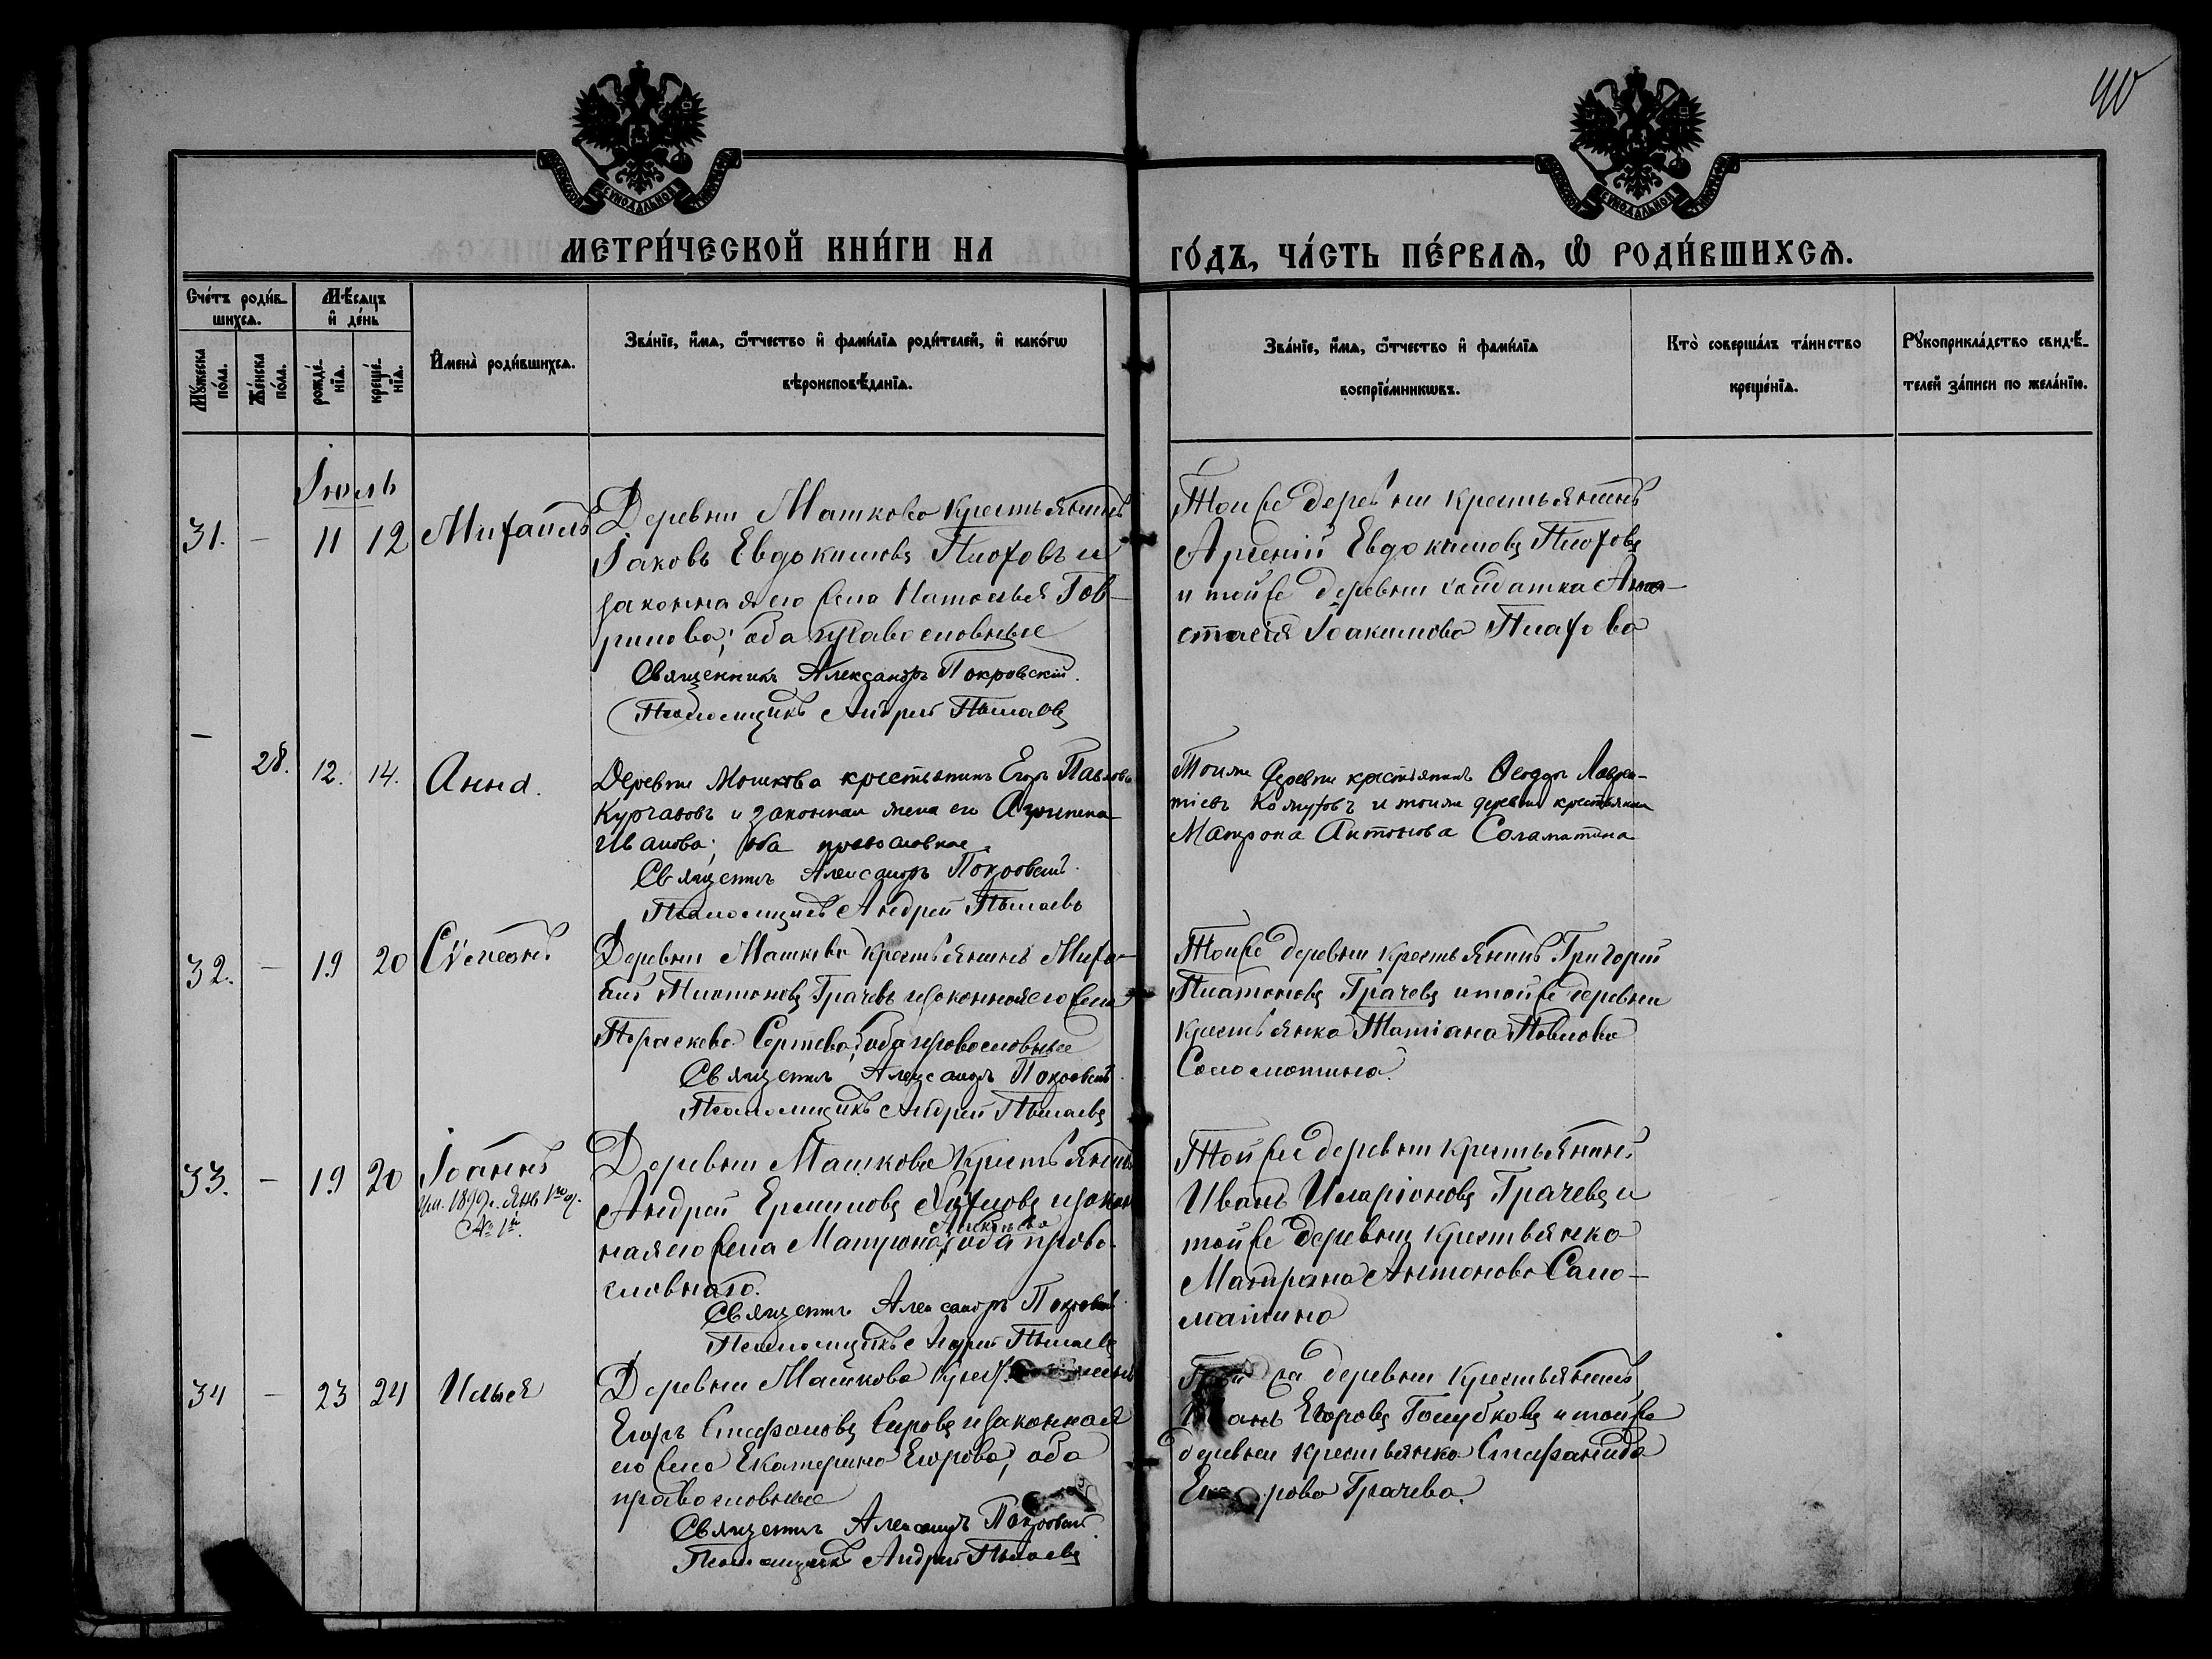 40
МЕТРИ́ЧЕСКОЙ КНИ́ГИ НА
ГО́ДЪ, ЧА́СТЬ ПЕ́РВАѦ, Ѽ РОДИ́ВШИХСѦ.
Сче́тъ роди́в-
шихсѧ.
Мѣ́сѧцъ
и҆ де́нь
Мꙋ́жеска
по́ла.
Же́нска
по́ла.
рожде́-
нїѧ.
креще́-
нїѧ.
И҆мена̀ роди́вшихсѧ.
Зва́нїе, и҆́мѧ, ѻ҆́тчество и҆ фами́лїѧ роди́телей, и҆ како́гѡ
вѣроисповѣ́данїѧ.
Зва́нїе, и҆́мѧ, ѻ҆́тчество и҆ фами́лїѧ
воспрїе́мникѡвъ.
Кто̀ соверша́лъ та́инство
креще́нїѧ.
Рꙋкоприкла́дство свидѣ́-
телей за́писи по жела́нїю.
Іюль
31. - 11 12 Михаилъ
Деревни Машкова крестьянинъ
Іаковъ Евдокимовъ Плоховъ и
законная его жена Наталья Гав-
рилова; оба православные
Священникъ Александръ Покровскій.
Псаломщикъ Андрей Пылаевъ
Той же деревни крестьянинъ
Арсеній Евдокимовъ Плоховъ
и той же деревни солдатка Ана-
стасія Іоакимова Плахова
- 28. 12. 14. Анна.
Деревни Машкова крестьянинъ Егоръ Павловъ
Курчавовъ и законная жена его Агрипена
Иванова; оба православные.
Священникъ Александръ Покровскій.
Псаломщикъ Андрей Пылаевъ
Той же деревни крестьянинъ Ѳеодоръ Лаврен-
тіевъ и той же деревни крестьянка
Матрона Антонова Саламатина
32. - 19 20 Сѵмеонъ
Деревни Машкова крестьянинъ Миха-
илъ Платоновъ Грачевъ и законная его жена
Параскева Сергѣева; оба православные
Священникъ Александръ Покровскій.
Псаломщикъ Андрей Пылаевъ
Той же деревни крестьянинъ Григорій
Платоновъ Грачевъ и той же деревни
крестьянка Татіана Павлова
Саломатина.
33. - 19 20 Іоаннъ
ум. 1899 г. Янв.
№ 1й.
Деревни Машкова крестьянинъ
Андрей Ермиловъ и закон
ная его жена Матрона, оба право-
славнаго.
Священникъ Александръ Покровскій.
Псаломщикъ Андрей Пылаевъ
Той же деревни крестьянинъ
Иванъ Иларіоновъ Грачевъ и
той же деревни крестьянка
Матрона Антонова Сало-
матина
34 - 23 24 Илья
Деревни Машкова
Егоръ Стефановъ Сыровъ и законная
его жена Екатерина Егорова, оба
православные
Священникъ Александръ Покровскій.
Псаломщикъ Андрей Пылаевъ
деревни крестьянинъ
Егоровъ Голубковъ и той же
деревни крестьянка Стефанида
Грачева.